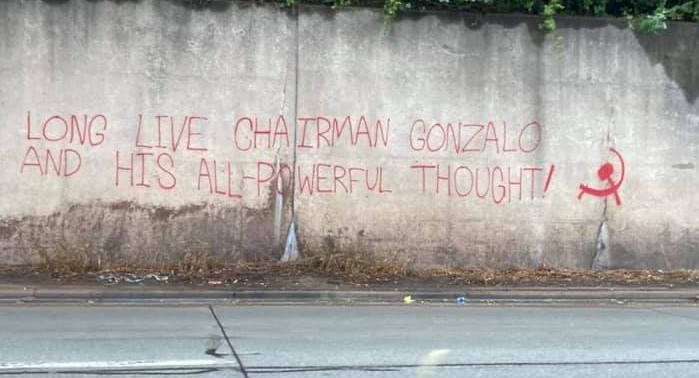 LONG LIVE CHAIRMAN GONZALO
AND HIS ALL-POWERFUL THOUGHT!